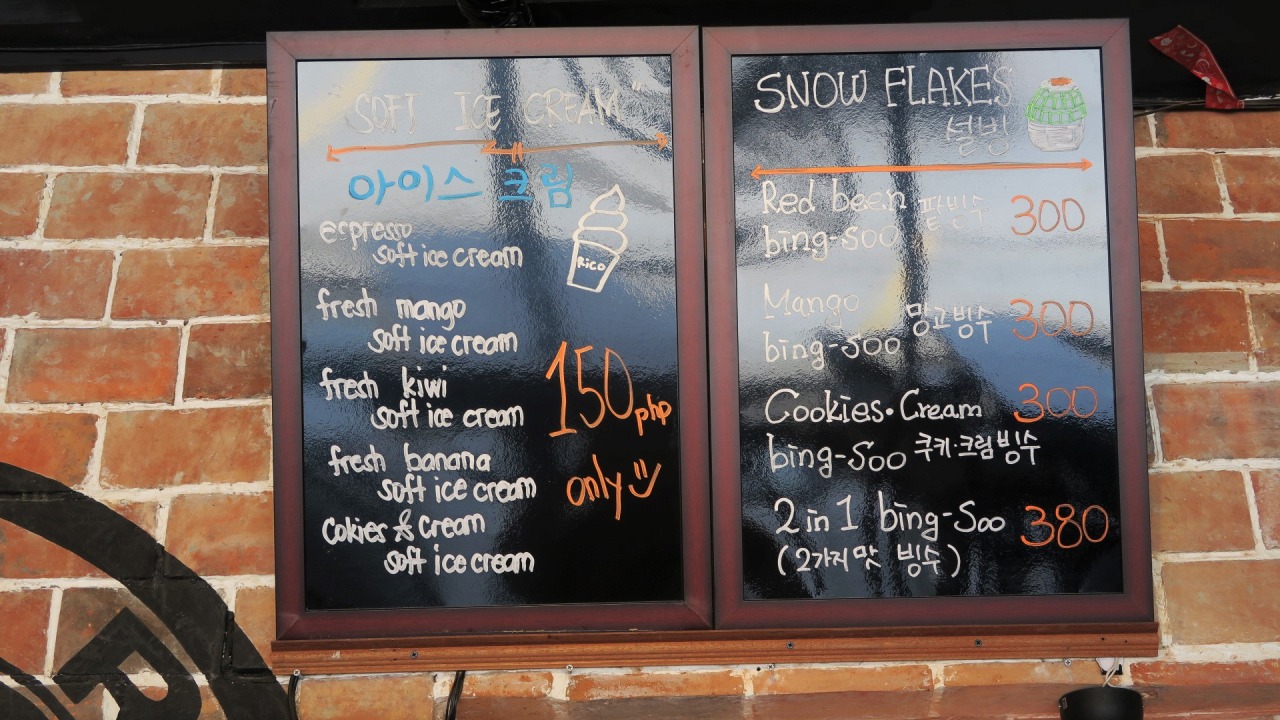 SOFT ICE CREAM"
아이스크림
ecpresso
soft ice cream
RICO
fresh mango
soft ice cream
fresh kiwi
soft ice cream
150 php
fresh banana
soft ice cream
only
Cokies & cream
soft ice cream
SNOW FLAKES
설빙
Red been 팥빙수 300
bing-soo
Mango 망고빙수 300
bing-soo
Cookies·Cream 300
bing-Soo 쿠키·크림빙수
2 in 1 bing-Soo 380
(2가지맛 빙수)